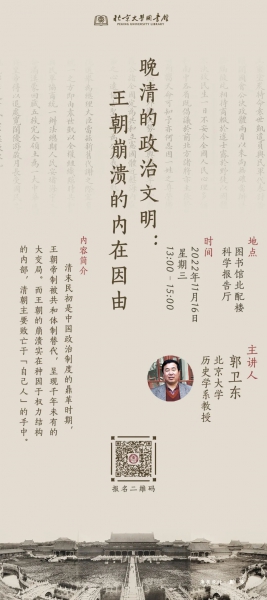 北京大學圖書館
PEKING UNIVERSITY LIBRARY
晚清的政治文明：
王朝崩溃的内在因由
地点
图书馆北配楼
科学报告厅
时间
2022年11月16日
星期三
13:00 - 15:00
主讲人
郭卫东
北京大学
历史学系教授
内容简介
清末民初是中国政治制度的鼎革时期，
王朝帝制被共和体制替代，呈现千年未有的
大变局。而王朝的崩溃实在种因于权力结构
的内部，清朝主要败亡于「自己人」的手中。
报名二维码